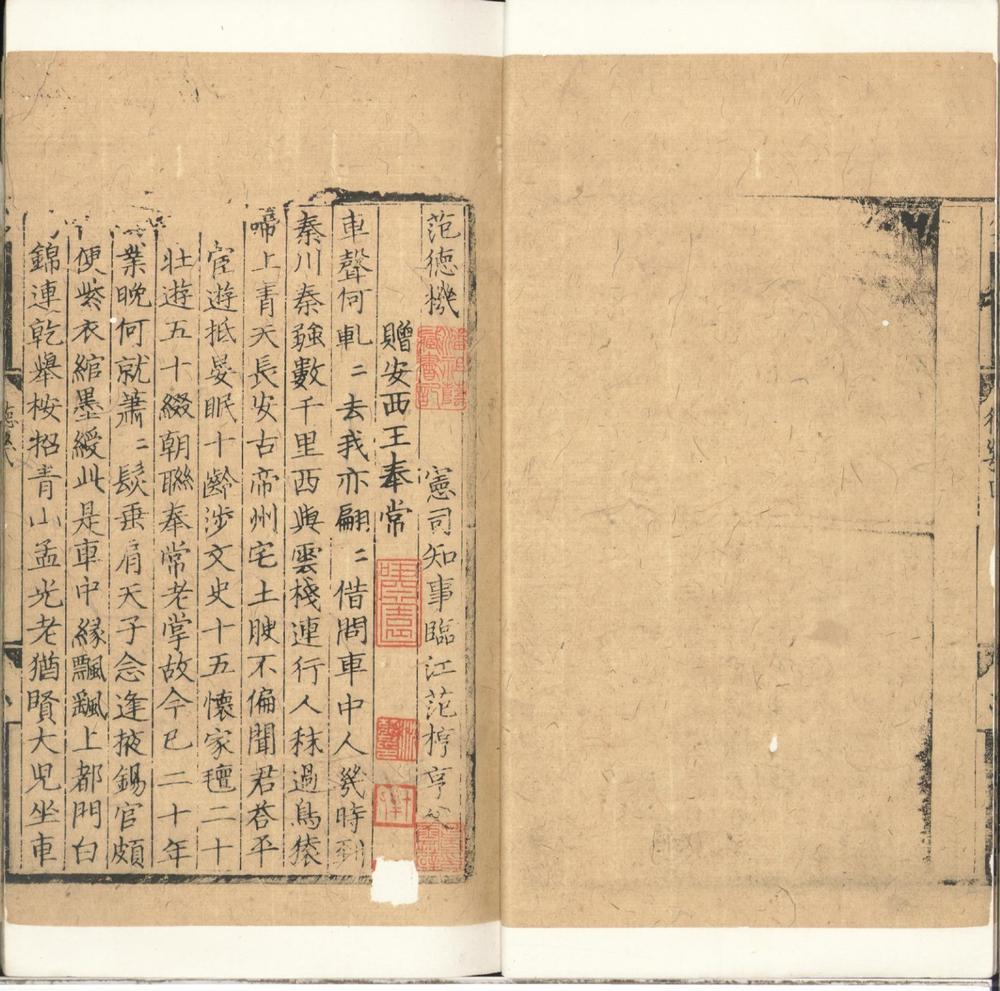 范德機
憲司知事臨江范梈亨父
贈安西王奉常
車聲何軋〻去我亦翩〻借問車中人幾時到
秦川秦強數千里西與雲棧連行人秣過鳥猿
啼上青天長安古帝州宅土腴不偏聞君荅平
宦遊抵晏眠十齡涉文史十五懷家氊二十
壮遊五十綴朝聯奉常老掌故今已二十年
業晚何就蕭〻髮垂肩天子念逢掖錫官頗
便紫衣綰墨綬此是車中縁飄飄上都門白
錦連乾舉桉招青山孟光老猶賢大児坐車
潘祖蔭藏書記
德幾